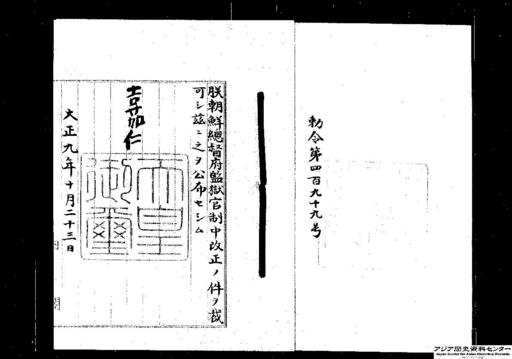 勅令第四百九十九号
朕朝鮮總督府監獄官制中改正ノ件ヲ裁
可シ茲ニ之ヲ公布セシム
嘉仁
天皇
御璽
大正九年十月二十三日
アジア歴史資料センター
Japan Center for Asian Historical Records